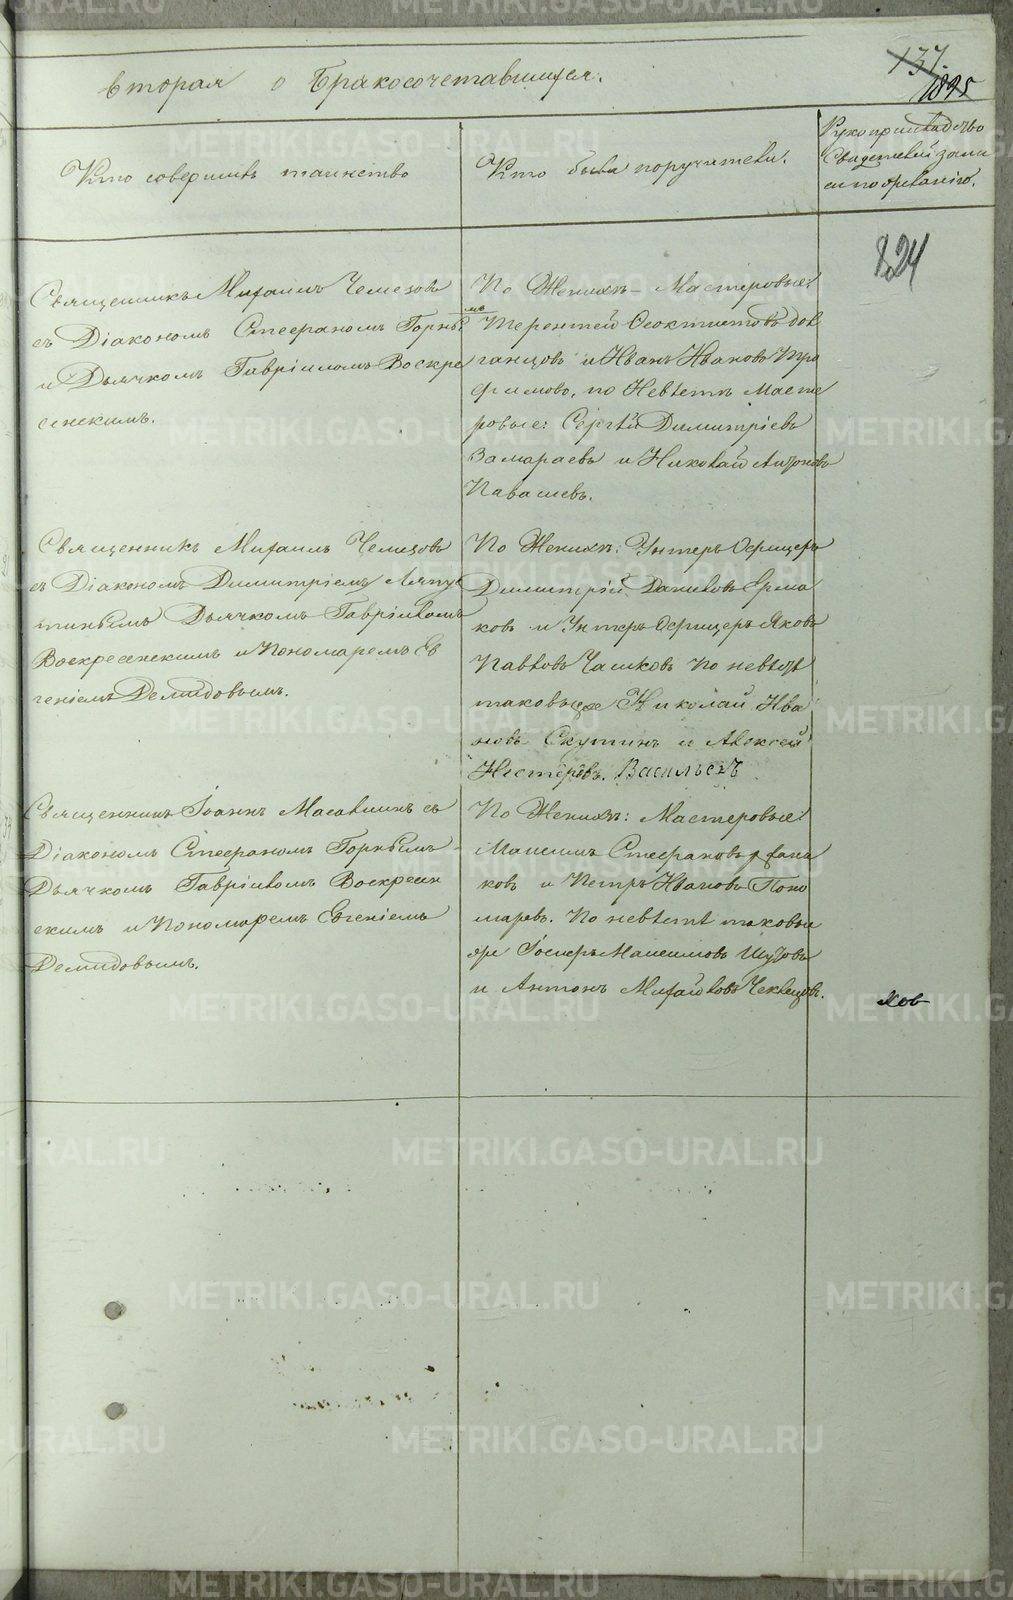 вторая о Бракосочетавшихся.
137.
1895
Кто совершилъ таинство
Кто были поручители.
Рукоприкладство
Свидетелей записи
по желанію.
824
Священникъ Михаилъ Чемезовъ
съ Діакономъ Стефаномъ Горнымъ
и Дьячкомъ Гавріиломъ Воскре
сенскимъ.
По Женихѣ – Мастеровые:
Терентей Феоктистовъ Дол
ганцовъ и Иванъ Ивановъ Тро
фимовъ, по Невѣстѣ Масте
ровые: Сергѣй Димитріевъ
Замараевъ и Николай Антоновъ
Павалиевъ.
Священникъ Михаилъ Чемезовъ
съ Діакономъ Димитріемъ Ляпус
тинымъ Дьячкомъ Гавріиломъ
Воскресенскимъ и Пономаремъ Ев
геніемъ Демидовымъ.
По Женихѣ: Унтеръ Офицеръ
Димитрій Даниловъ Ерма
ковъ и Унтеръ Офицеръ Яковъ
Павловъ Чашковъ по невѣстѣ
таковые же Николай Ива
новъ Скутинъ и Алексей
Нестеровъ. Васильевъ
Священникъ Іоаннъ съ
Діакономъ Стефаномъ Горнымъ
Дьячкомъ Гавріиломъ Воскресен
скимъ и Пономаремъ Евгеніемъ
Демидовымъ.
По Женихѣ: Мастеровые
Максимъ Стефановъ
ковъ и Петръ Ивановъ Поно
маревъ. По невѣстѣ таковые
же Іосифъ Максимовъ Шуховъ
и Антонъ Михайловъ Чеквецовъ.
METRIKI.GASO-URAL.RU